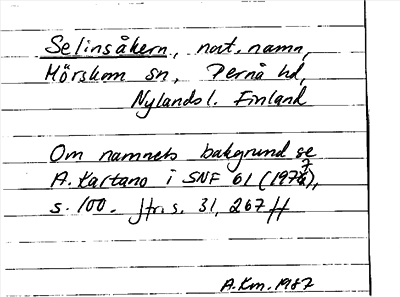 Selinsåkern, nat. namn,
Mörskom sn, Pernå hd,
Nylands l. Finland
Om namnets bakgrund se
A. Kartano i SNF 61 (1977),
s. 100. Jfr. s. 31, 267 ff
A.Km. 1987